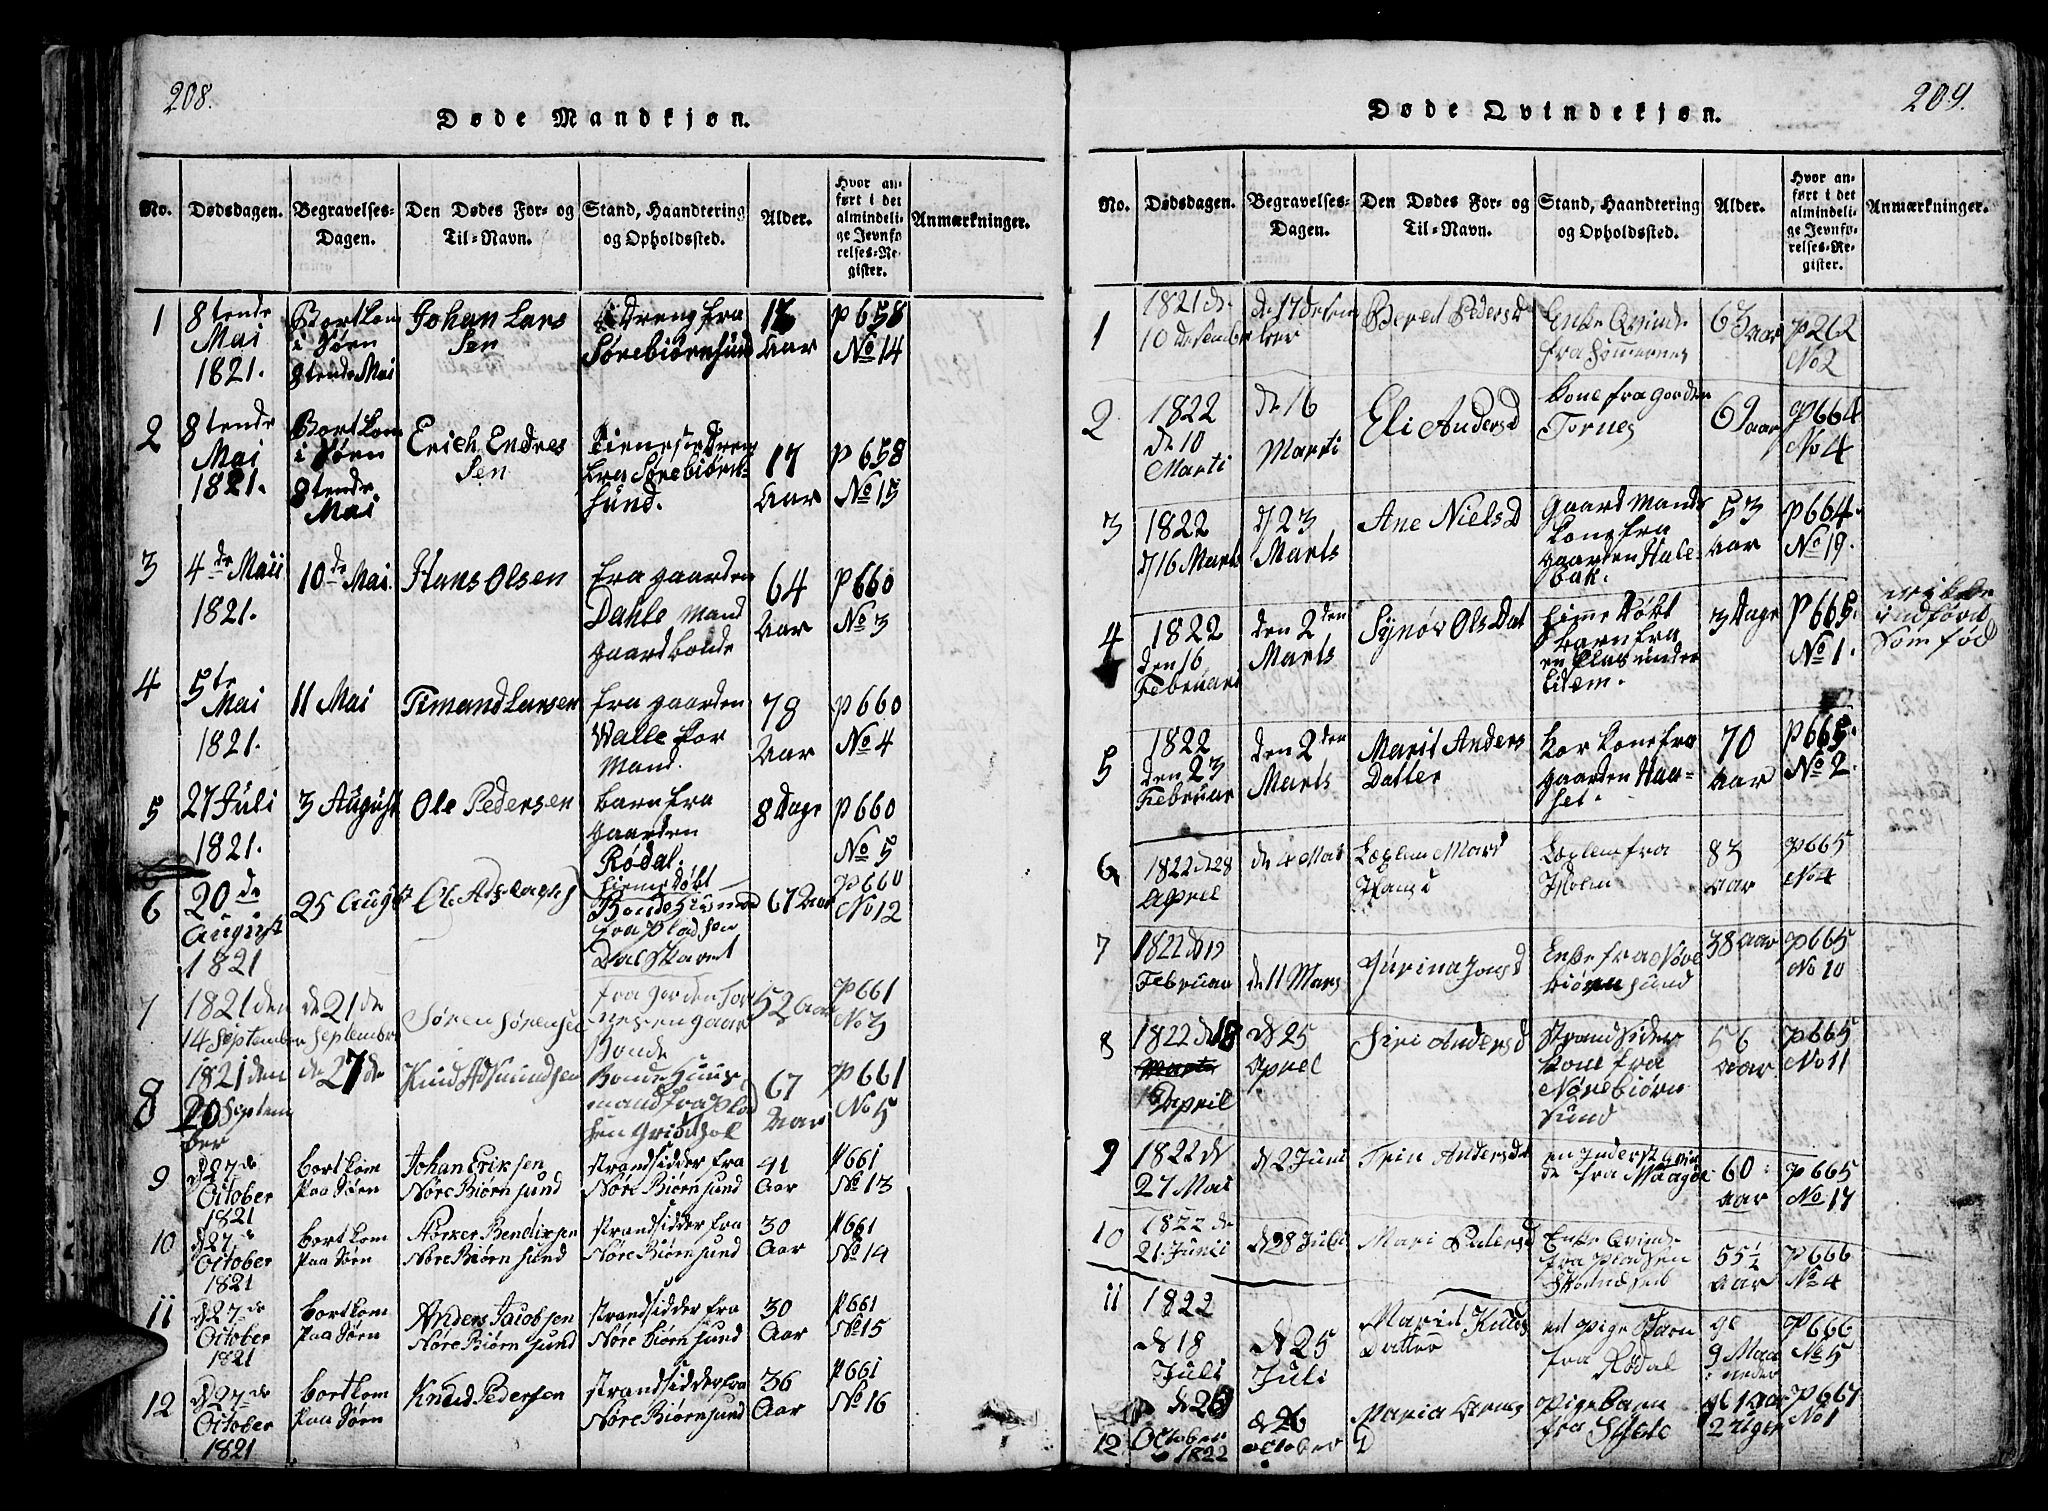 208.
Døde Mandkjøn.
No.
Dødsdagen.
Begravelses-
Dagen.
Den Dødes For- og
Til-Navn.
Stand, Haandtering
og Opholdssted.
Alder.
Hvor an-
ført i det
almindeli-
ge Jevnfø-
relses-Re-
gister.
Anmærkninger.
1
8tende
Mai
1821.
Bortkom
i Søen
8tende Mai
Johan Lars
Sen
Dreng fra
Sørebiørnsund
Aar
P 658
No 14
2
8tende
Mai
1821.
Bortkom
i Søen
8tende
Mai
Erich Endres
Sen
Tieneste Dreng
fra Sørebiørn-
sund.
17
Aar
P 658
No 15
3
4de Maii
1821.
10de Mai
Hans Olsen
fra gaarden
Dahle Mand
gaardbonde
64
Aar
P 660
No 3
4
5te
Mai
1821.
11 Mai
Amand Larsen
fra gaarden
Walle kor
Mand.
78
Aar
P 660
No 4
5
27 Juli
1821.
3 August
Ole Pedersen
barn fra
gaarden
Rødal.
hieme Døbt
8 Dage
P 660
No 5
6
20de
August
1821
25 August
fra Pladsen
Dalskaret
67 Aar
P 660
No 12
7
1821 den
14 September
de 21de
September
Søren Sørensen
fra gorden Tor
nes en gaar
Bonde
52 Aar
P 661
No 3
8
1821 den
20 Septem
ber
de 27de
Knud Asmundsen
Bonde Huus
mand fra Plad
sen
67
Aar
P 661
No 5
9
D 27de
October
1821
bortkom
paa Søen
Johan Eriksen
Nøre Biørnsund
strandsidder fra
Nøre Biørnsund
41
Aar
P 661
No 13
10
D 27de
October
1821
bortkom
paa Søen
Størker Bendixsen
Nøre Biørnsund
strandsidder fra
Nøre Biørnsund
30
Aar
P 661
No 14
11
D 27de
October
1821
bortkom
paa Søen
Anders Jacobsen
Nøre Biørnsund
strandsidder fra
Nøre Biørnsund
30
Aar
P 661
No 15
12
D 27de
October
1821
bortkom
paa Søen
Knud Pedersen
strandsidder fra
Nøre Biørnsund
36
Aar
P 661
No 16
209.
Døde Qvindekjøn.
No.
Dødsdagen.
Begravelses-
Dagen.
Den Dødes For- og
Til-Navn.
Stand, Haandtering
og Opholdssted.
Alder.
Hvor an-
ført i det
almindeli-
ge Jevnfø-
relses-Re-
gister.
Anmærkninger.
1
1821 de
10 Desember
de 17 Desem
ber
Bered Pedersd
Enke Qvinde
63 aar
P 262
No 2
2
1822
de 10
Marti
de 16
Marti
Eli Andersd
kone fra gorden
Tornes
69 aar
P 664
No 4
3
1822
d 16 Marts
d 23
Marts
Ane Nielsd
gaard Mands
kone fra
gaarden Hale
bak.
53
Aar
P 664.
No 19.
4
1822
den 16
Februari
den 2den
Marts
Synøv Ols Dat
hieme Døbt
barn fra
en Plas under
Lidem.
3 Dage
P 665.
No 1.
er ikke
indført
som fød
5
1822
den 23
Februar
den 2den
Marts
Marit Anders
Datter
kor kone fra
gaarden Haa-
set.
70
Aar
P 665.
No 2.
6
1822 d 28
Aprel
de 4 Mai
Hansd
Holm
83
Aar
P 665
No 4
7
1822 d 19
Februar
de 11 Mars
Gurina Jonsd
Enke fra Nøre
biørnsund
38 aar
P 665
No 10
8
1822 de 18
April
d 25
Aprel
Siri Andersd
Strandsider
kone fra
Nørebiørn
sund
56
Aar
P 665
No 11
9
1822 d
27 Mai
d 2 Juni
60
aar
P 665
No 17
10
1822 de
21 Junii
d 28 Juli
Mari Pedersd
Enke Qvinde
fra Pladsen
55 ½
Aar
P 666
No 4
11
1822
d 18
Juli
d 25
Juli
Marid Knuds
Datter
et Pige Barn
fra Rødal
9 Maa
neder
P 666
No 5
12
d 20
October
1822
d 26
october
Maria
D
Pige Barn
fra
gl 1 Aar
2 Uger
P 667
No 1